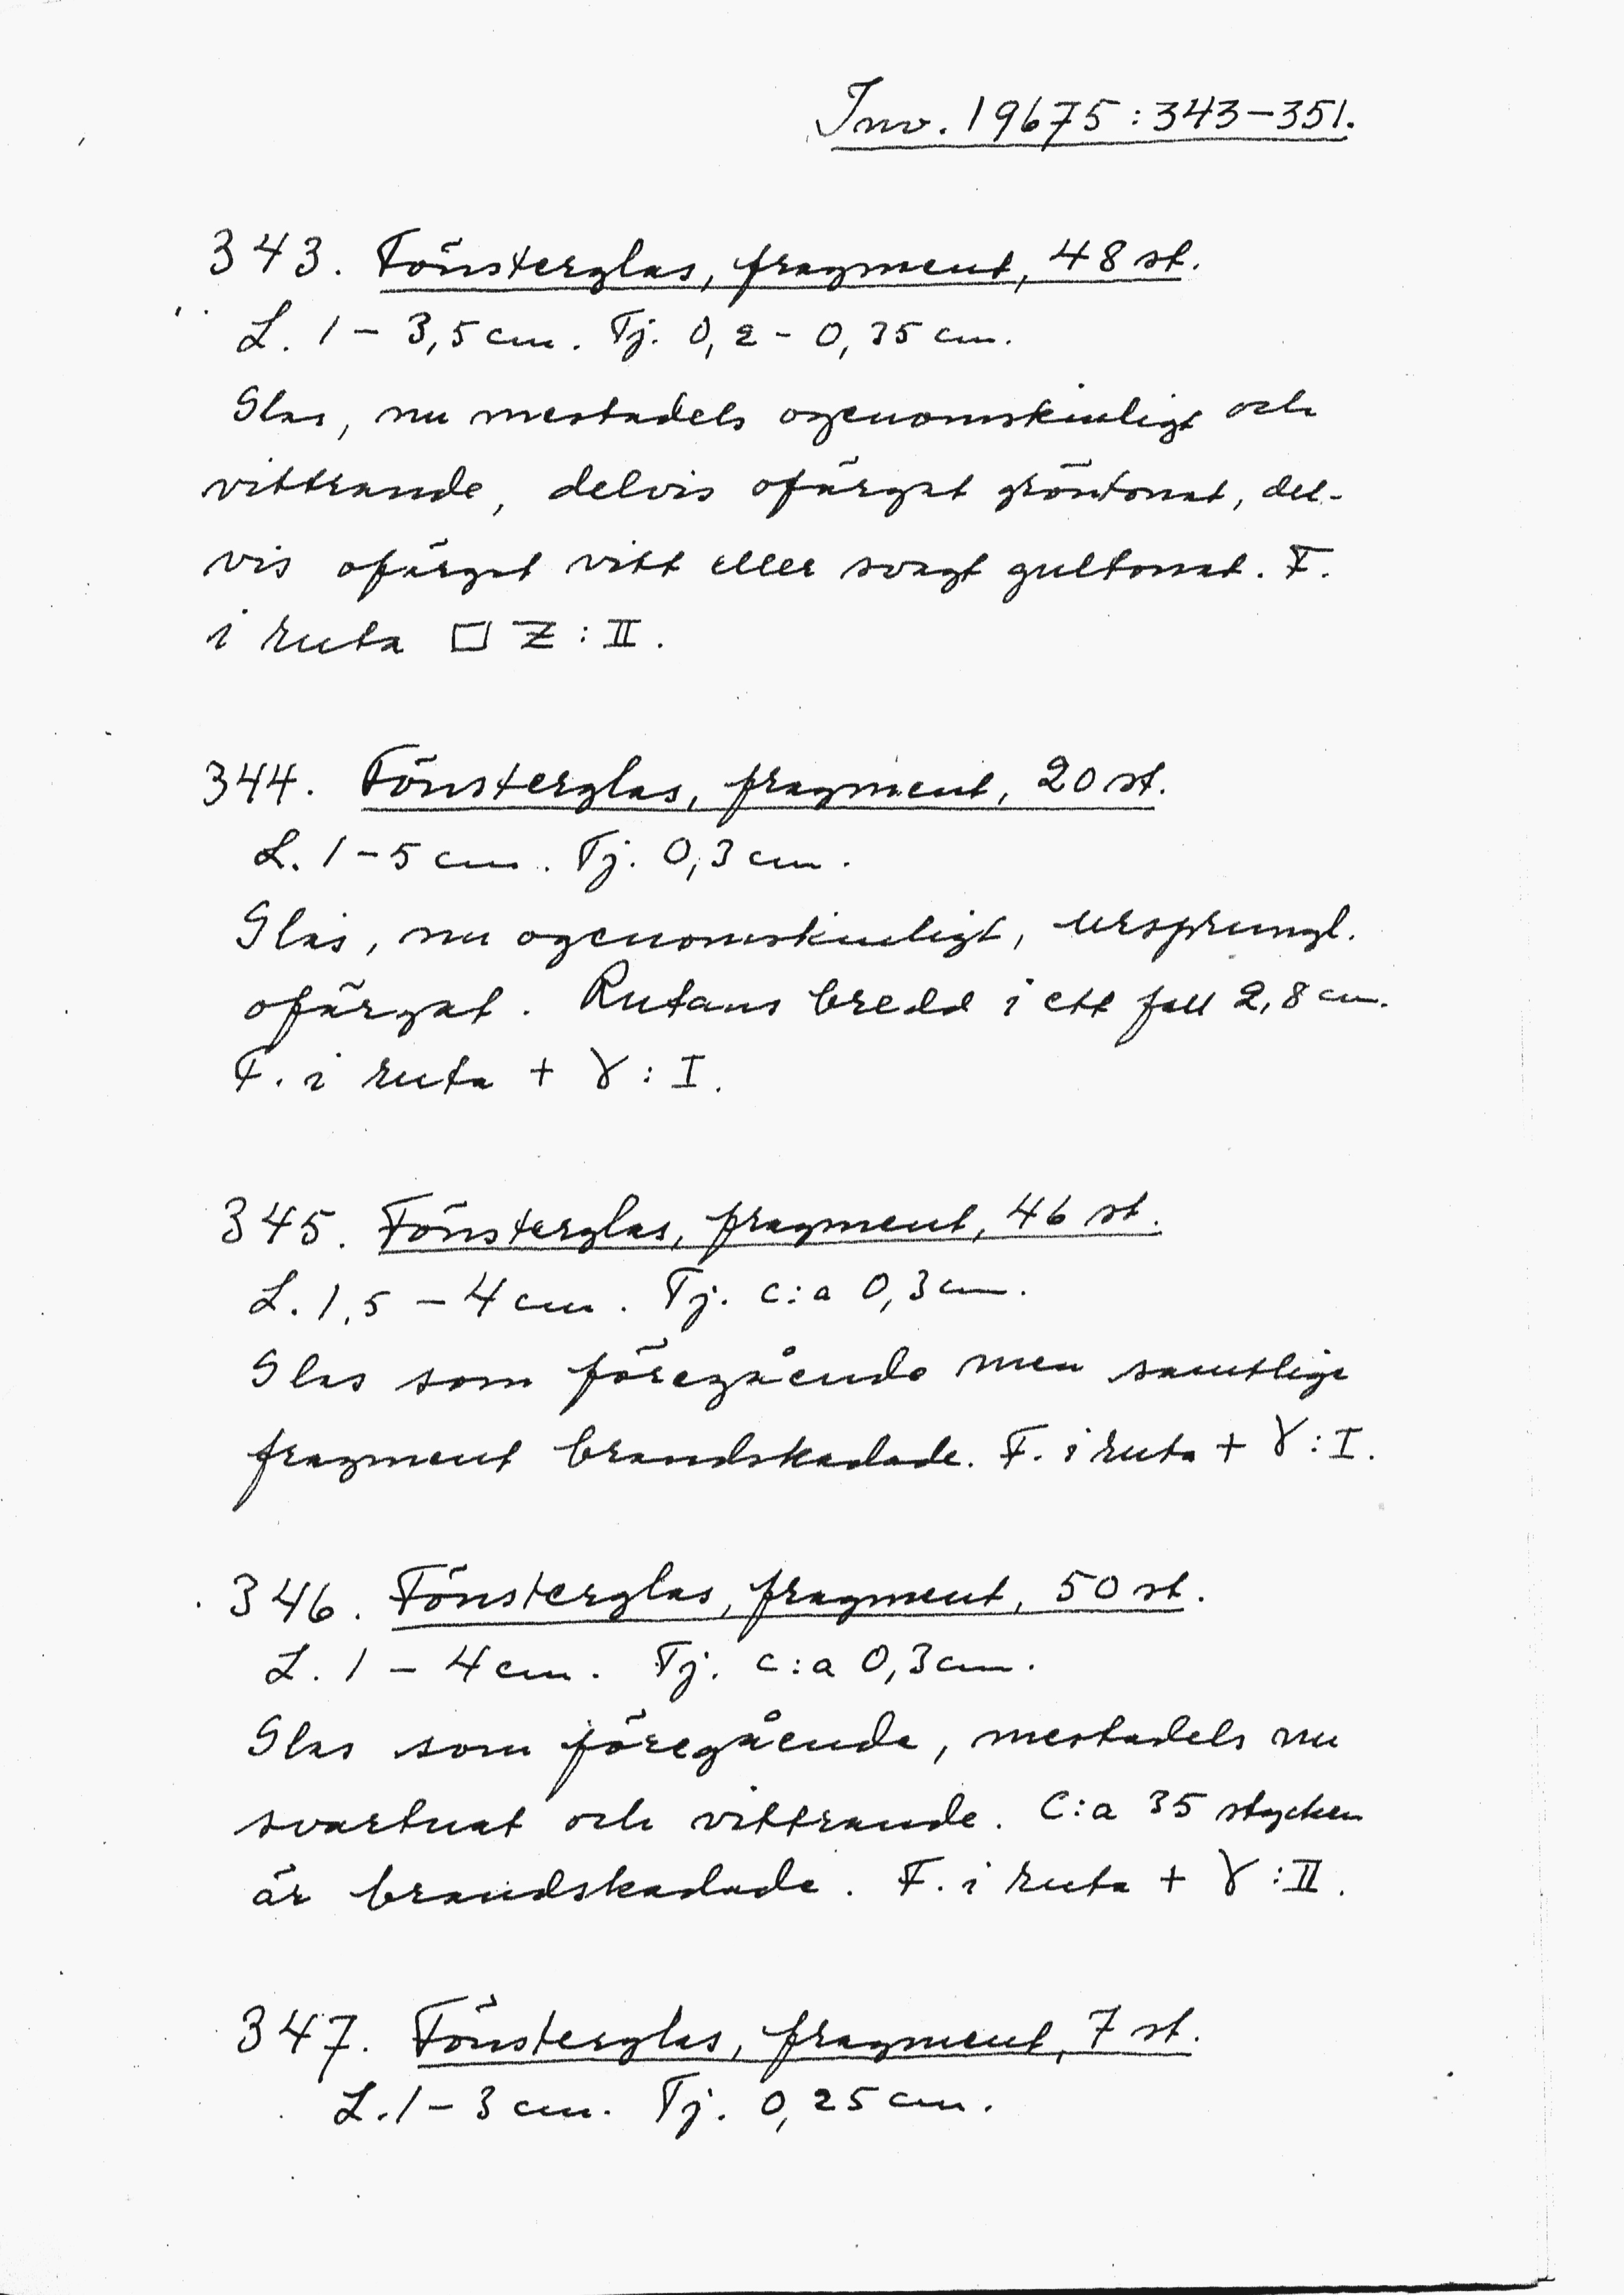 Inv. 19675:343-351.
343. Fönsterglas, fragment, 48 st.
L. 1 - 3,5 cm. Tj. 0,2 - 0,35 cm.
Glas, nu mestadels ogenomskinligt och
vittrande, delvis ofärgat gröntonat, del-
vis ofärgat vitt eller svagt gultonat. F.
i ruta □ Z : II.
344. Fönsterglas, fragment, 20 st.
L. 1 - 5 cm. Tj. 0,3 cm.
Glas, nu ogenomskinligt, ursprungl.
ofärgat. Rutans bredd i ett fall 2,8 cm.
F. i ruta + γ : I.
345. Fönsterglas, fragment, 46 st.
L. 1,5 - 4 cm. Tj. c:a 0,3 cm.
Glas som föregående men samtliga
fragment brandskadade. F. i ruta + γ : I.
346. Fönsterglas, fragment, 50 st.
L. 1 - 4 cm. Tj. c:a 0,3 cm.
Glas som föregående, mestadels nu
svartnat och vittrande. C:a 35 stycken
är brandskadade. F. i ruta + γ : II.
347. Fönsterglas, fragment, 7 st.
L. 1 - 3 cm. Tj. 0,25 cm.